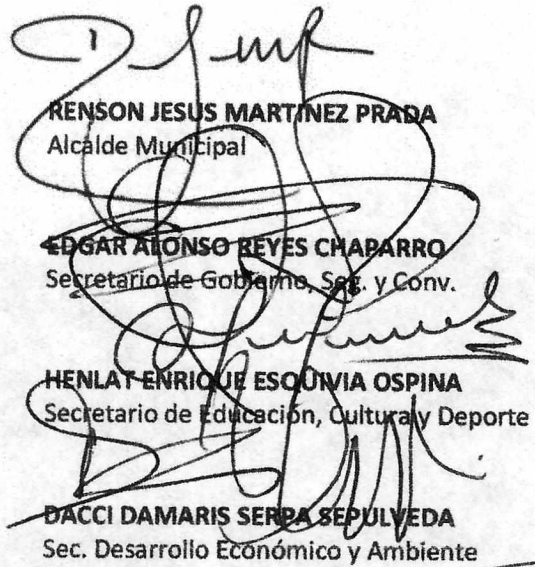 RENSON JESUS MARTINEZ PRADA
Alcalde Municipal
EDGAR ALONSO REYES CHAPARRO
Secretario de Gobierno, Seg. y Conv.
HENLAT ENRIQUE ESQUIVIA OSPINA
Secretario de Educación, Cultura y Deporte
DACCI DAMARIS SERPA SEPULVEDA
Sec. Desarrollo Económico y Ambiente